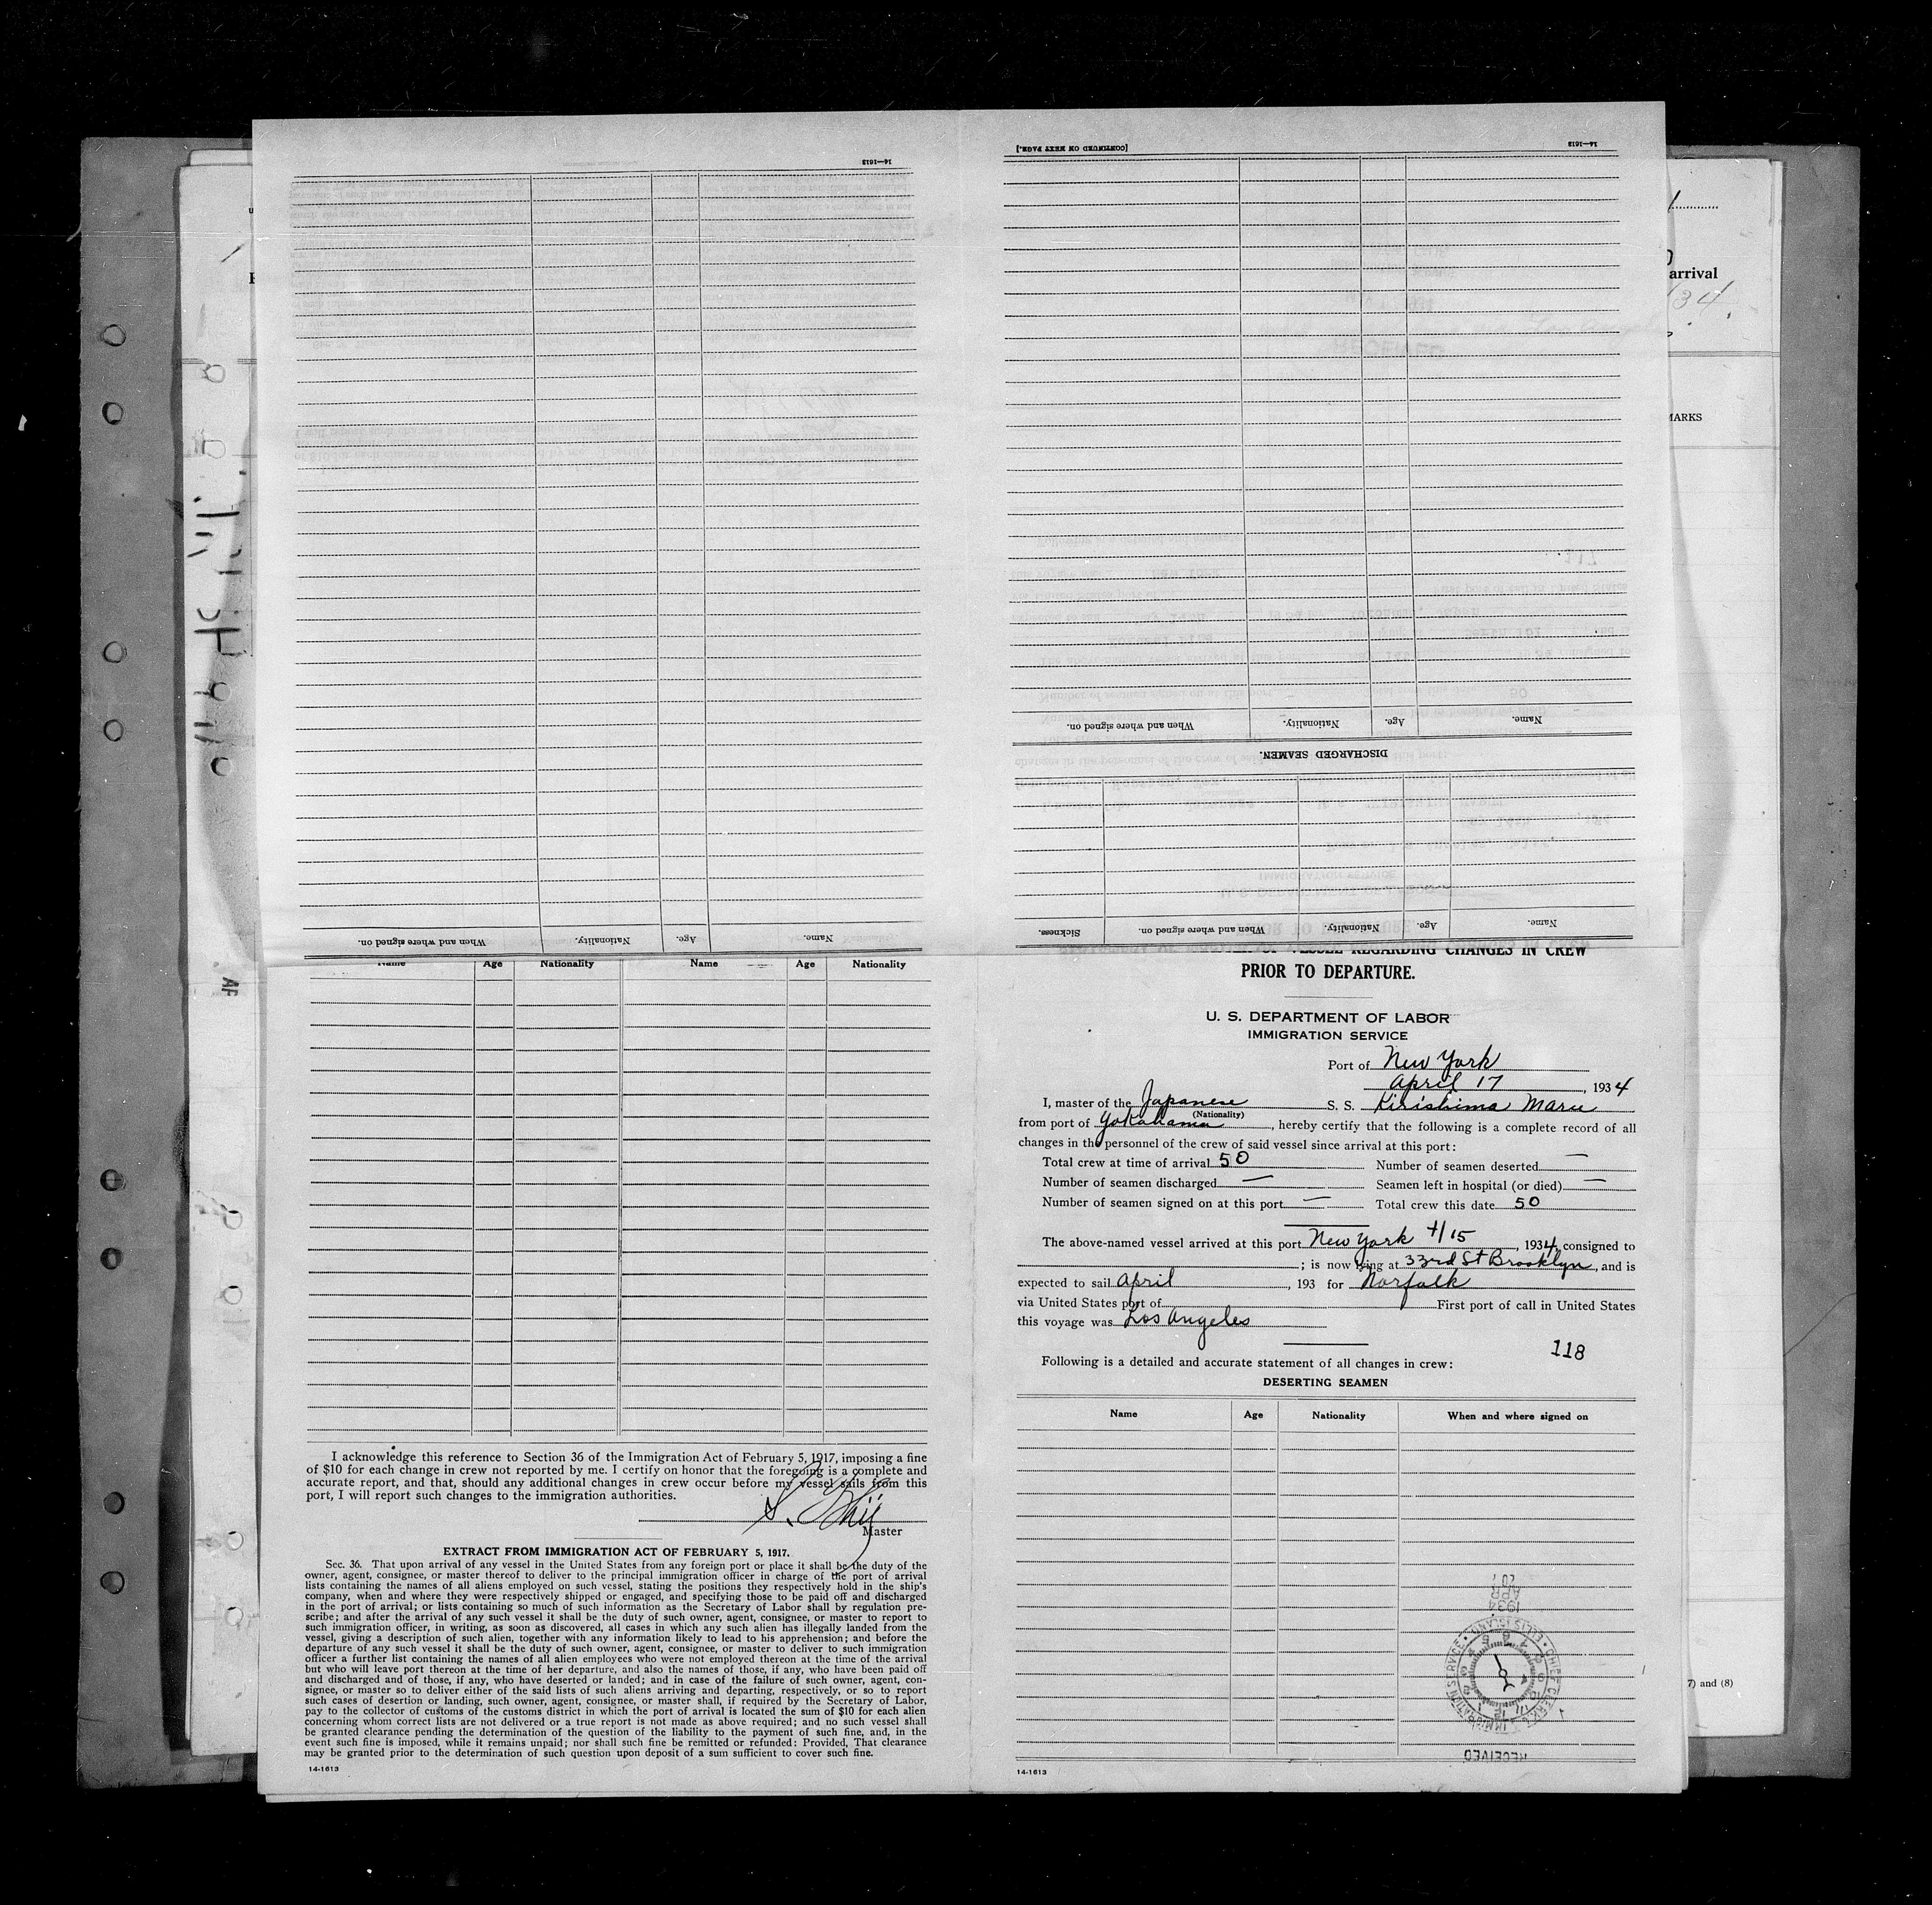 14—1613
[CONTINUED ON NEXT PAGE.]
14—1613
arrival
34.
MARKS
When and where signed on.
Nationality.
Age.
Name.
DISCHARGED SEAMEN.
When and where signed on.
Nationality.
Age.
Name.
Sickness.
When and where signed on.
Nationality.
Age.
Name.
Name Age Nationality Name Age Nationality
I acknowledge this reference to Section 36 of the Immigration Act of February 5, 1917, imposing a fine
of $10 for each change in crew not reported by me. I certify on honor that the foregoing is a complete and
accurate report, and that, should any additional changes in crew occur before my vessel sails from this
port, I will report such changes to the immigration authorities.
Master
EXTRACT FROM IMMIGRATION ACT OF FEBRUARY 5, 1917.
Sec. 36. That upon arrival of any vessel in the United States from any foreign port or place it shall be the duty of the
owner, agent, consignee, or master thereof to deliver to the principal immigration officer in charge of the port of arrival
lists containing the names of all aliens employed on such vessel, stating the positions they respectively hold in the ship's
company, when and where they were respectively shipped or engaged, and specifying those to be paid off and discharged
in the port of arrival; or lists containing so much of such information as the Secretary of Labor shall by regulation pre-
scribe; and after the arrival of any such vessel it shall be the duty of such owner, agent, consignee, or master to report to
such immigration officer, in writing, as soon as discovered, all cases in which any such alien has illegally landed from the
vessel, giving a description of such alien, together with any information likely to lead to his apprehension; and before the
departure of any such vessel it shall be the duty of such owner, agent, consignee, or master to deliver to such immigration
officer a further list containing the names of all alien employees who were not employed thereon at the time of the arrival
but who will leave port thereon at the time of her departure, and also the names of those, if any, who have been paid off
and discharged and of those, if any, who have deserted or landed; and in case of the failure of such owner, agent, con-
signee, or master so to deliver either of the said lists of such aliens arriving and departing, respectively, or so to report
such cases of desertion or landing, such owner, agent, consignee, or master shall, if required by the Secretary of Labor,
pay to the collector of customs of the customs district in which the port of arrival is located the sum of $10 for each alien
concerning whom correct lists are not delivered or a true report is not made as above required; and no such vessel shall
be granted clearance pending the determination of the question of the liability to the payment of such fine, and, in the
event such fine is imposed, while it remains unpaid; nor shall such fine be remitted or refunded: Provided, That clearance
may be granted prior to the determination of such question upon deposit of a sum sufficient to cover such fine.
14-1613
VESSEL REGARDING CHANGES IN CREW
PRIOR TO DEPARTURE.
U. S. DEPARTMENT OF LABOR
IMMIGRATION SERVICE
Port of New York
April 17, 1934
I, master of the Japanese S. S. Kirishima Maru
(Nationality)
from port of Yokohama, hereby certify that the following is a complete record of all
changes in the personnel of the crew of said vessel since arrival at this port:
Total crew at time of arrival 50 Number of seamen deserted —
Number of seamen discharged — Seamen left in hospital (or died) —
Number of seamen signed on at this port — Total crew this date 50
The above-named vessel arrived at this port New York 4/15, 1934, consigned to
; is now lying at 33rd St Brooklyn, and is
expected to sail April, 193 for Norfolk
via United States port of First port of call in United States
this voyage was Los Angeles
118
Following is a detailed and accurate statement of all changes in crew:
DESERTING SEAMEN
Name Age Nationality When and where signed on
APR
1934
CHIEF CLERK IMMIGRATION SERVICE ELLIS ISLAND
RECEIVED
14-1613
7) and (8)